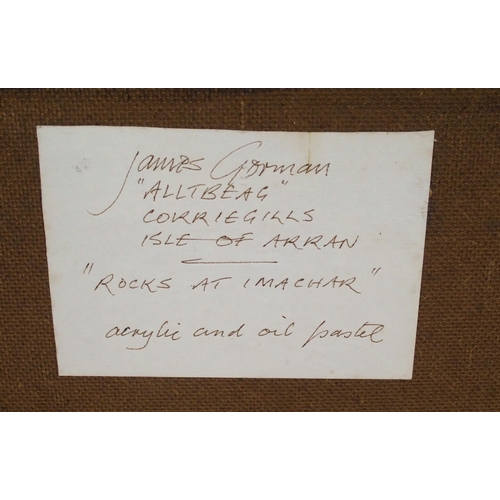 James Gorman
"ALLTBEAG"
CORRIEGILLS
ISLE OF ARRAN
"ROCKS AT IMACHAR"
acrylic and oil pastel